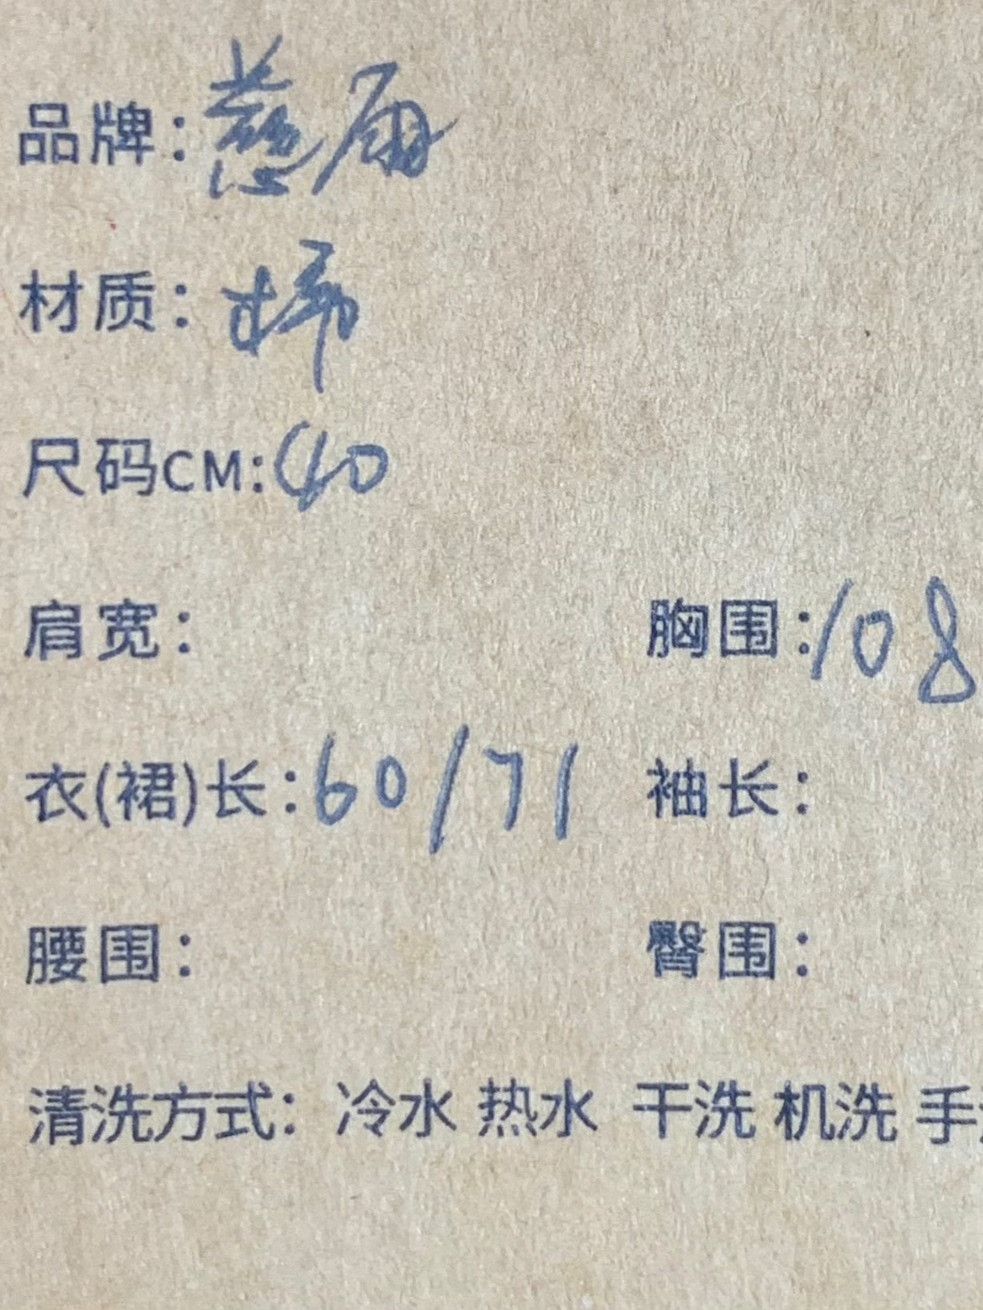 品牌：慈
材质：棉
尺码CM:40
肩宽： 胸围：108
衣(裙)长：60/71 袖长：
腰围： 臀围：
清洗方式： 冷水 热水 干洗 机洗 手